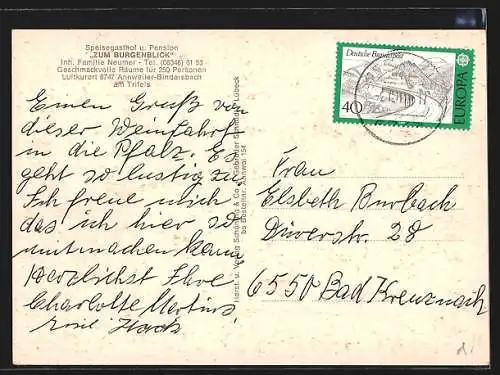 Speisegasthof u. Pension
„ZUM BURGENBLICK“
Inh. Familie Neumer - Tel. (06346) 81 53
Geschmackvolle Räume für 250 Personen
Luftkurort 6747 Annweiler-Bindersbach
am Trifels
Einen Gruß von
dieser Weinfahrt
in die Pfalz. Es
geht so lustig zu.
Ich freue mich
das ich hier so
mitmachen kann
Herzlichst Ihre
Charlotte Martins
Deutsche Bundespost
40
EUROPA
Frau
Elsbeth Burbach
28
6550 Bad Kreuznach